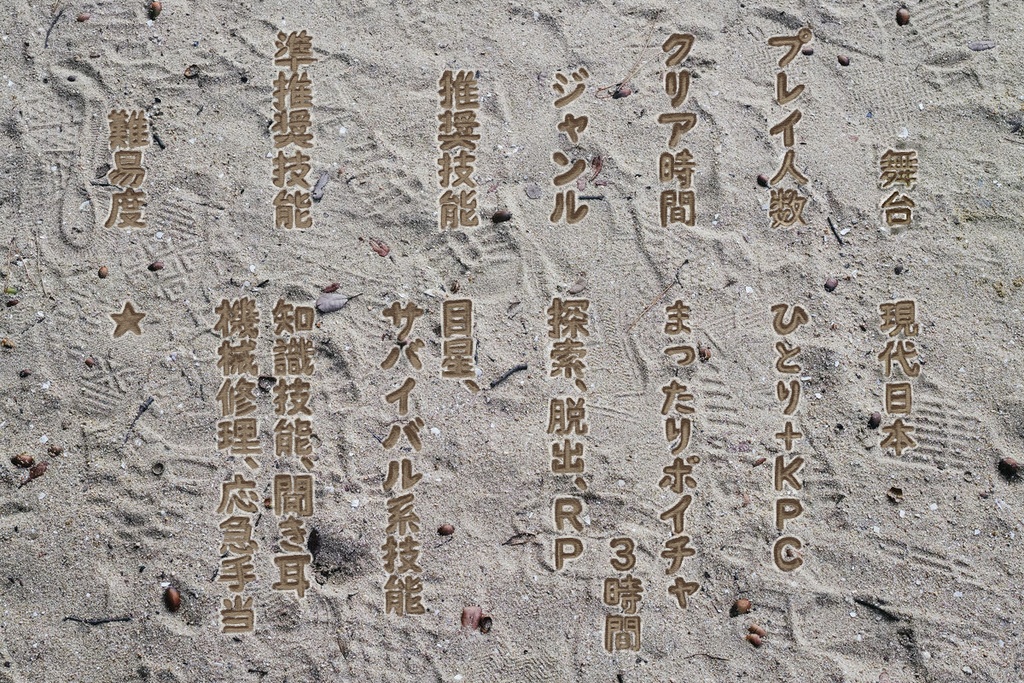 舞台
現代日本
プレイ人数
ひとり+KPC
クリア時間
まったりボイチャ
3時間
ジャンル
探索、脱出、RP
推奨技能
目星、
サバイバル系技能
準推奨技能
知識技能、聞き耳
機械修理、応急手当
難易度
★